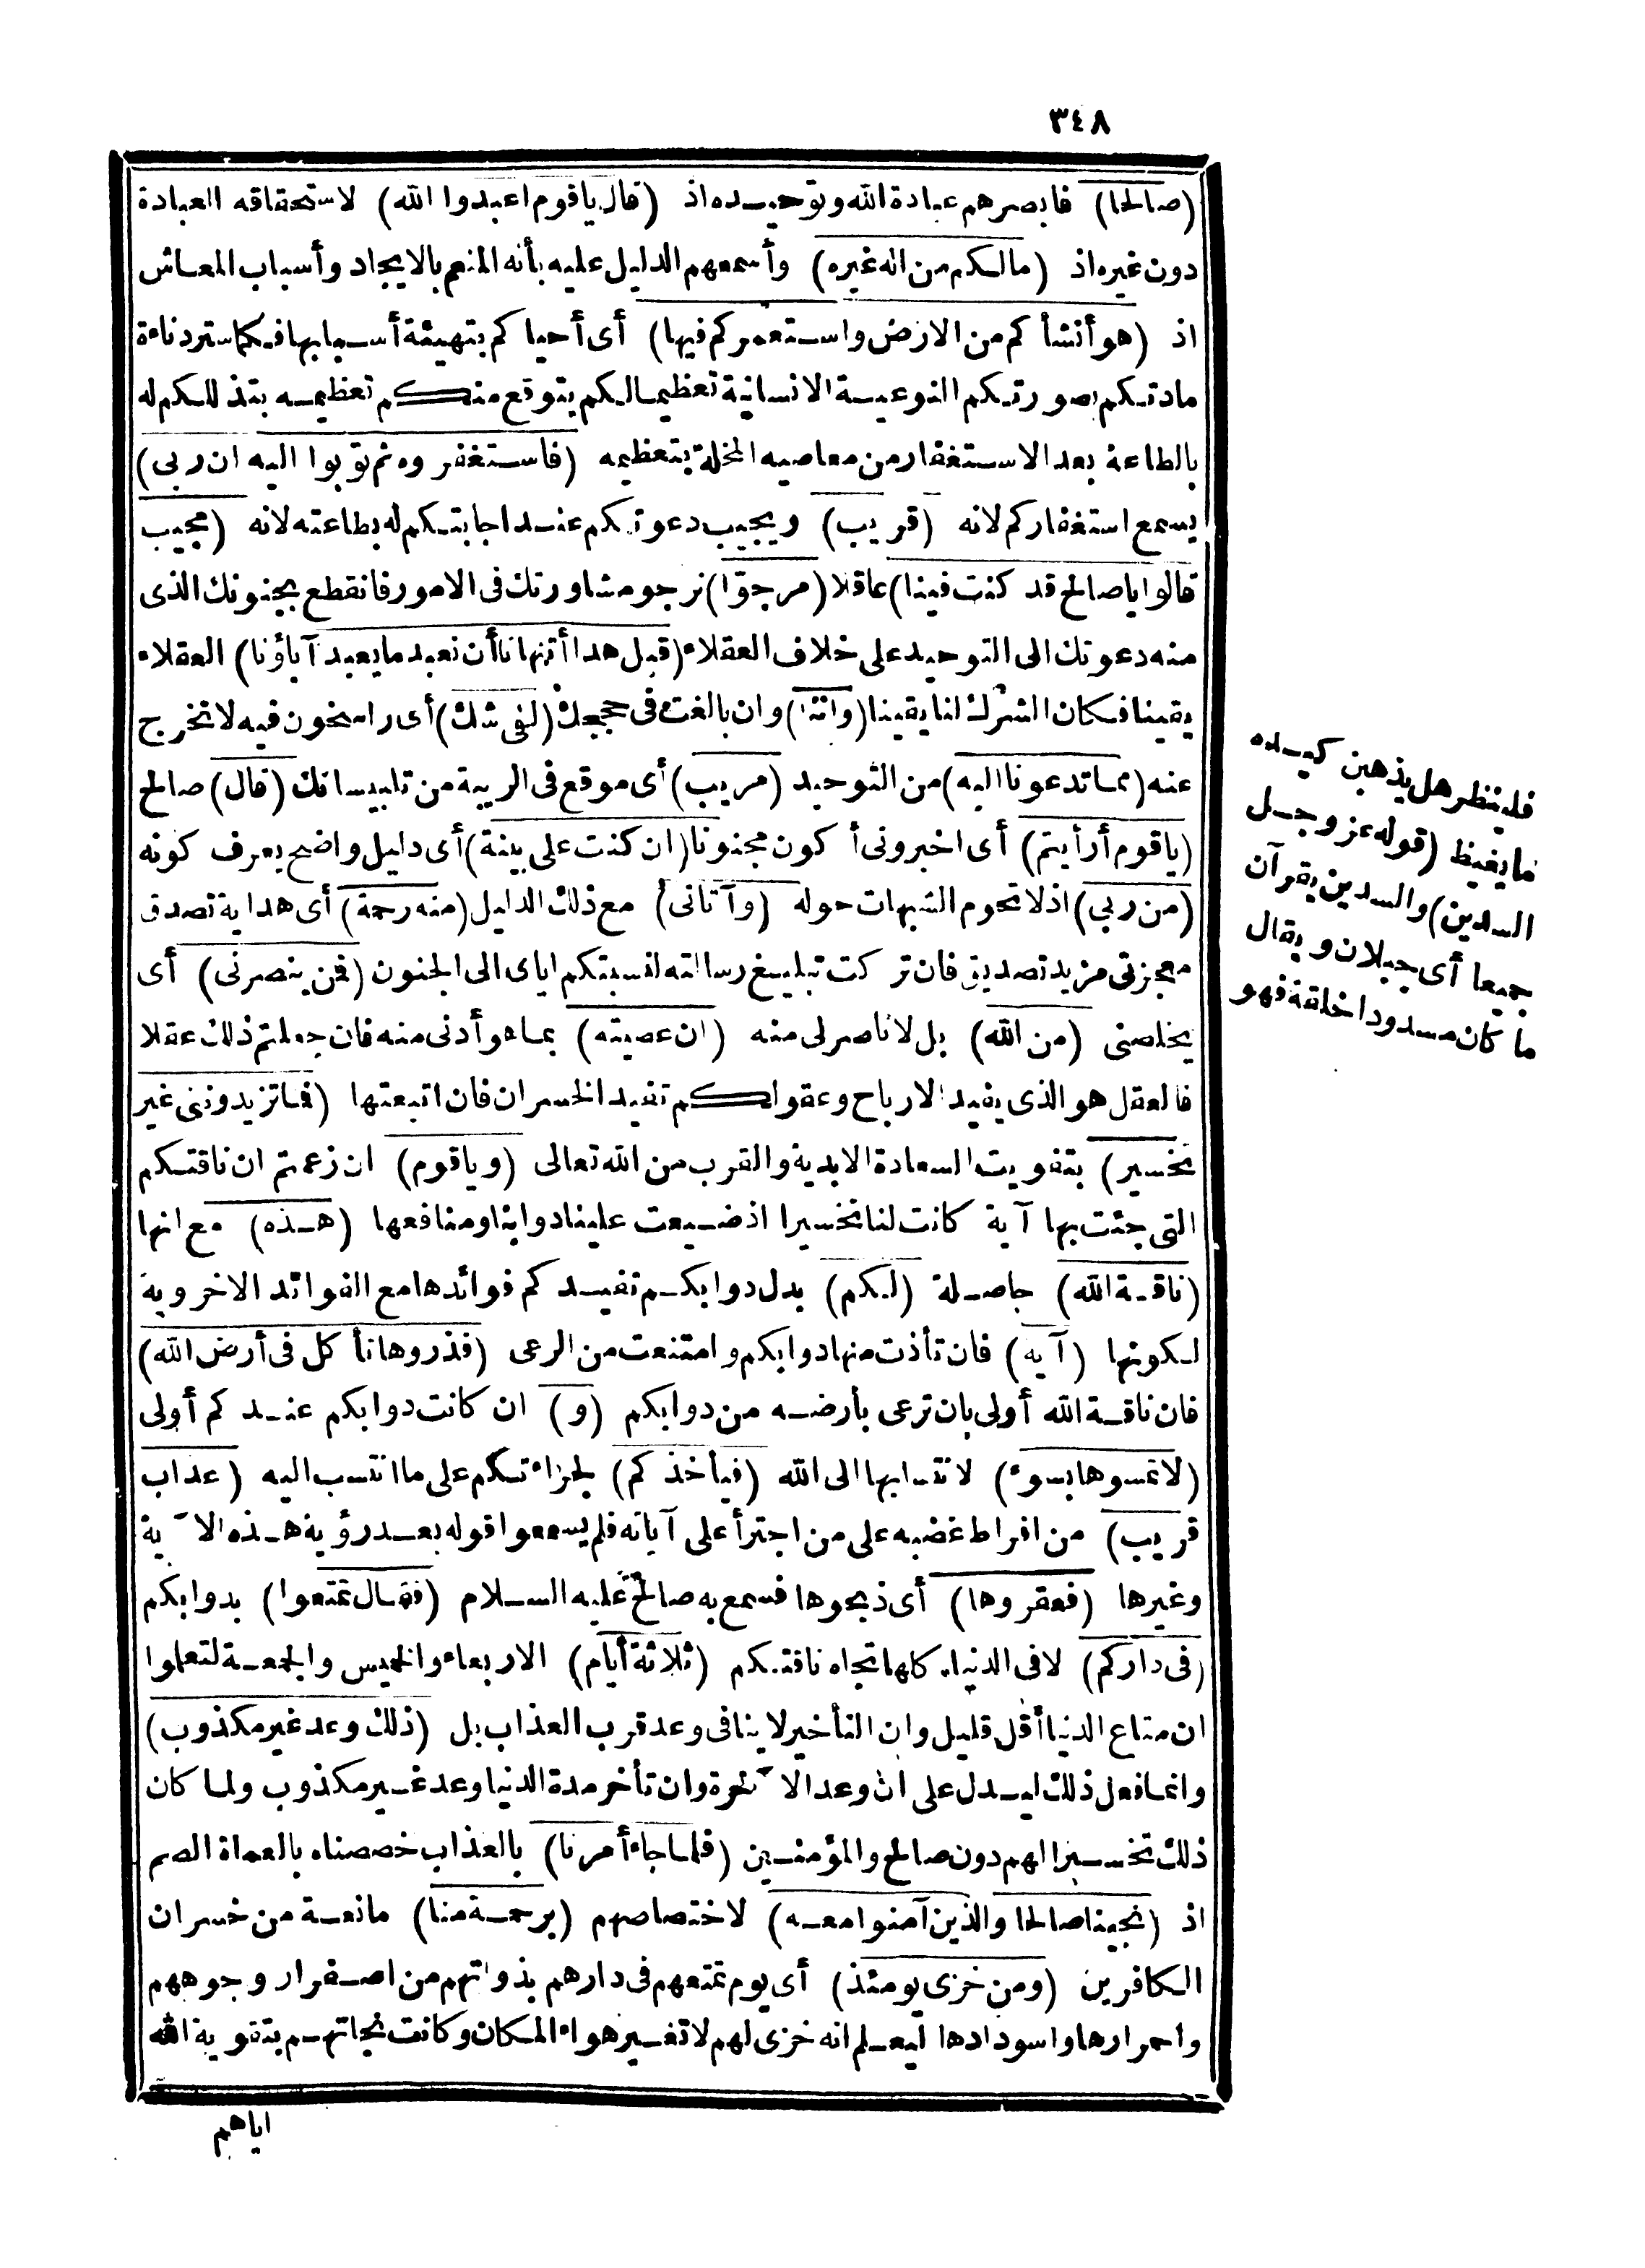 ٣٤٨
(صالحا) فابصرهم عبادة الله وتوحيده اذ (قال ياقوم اعبدوا الله) لاستحقاقه العبادة
دون غيره اذ (مالكم من اله غيره) وأسمعهم الدليل عليه بأنه المنعم بالايجاد وأسباب المعاش
اذ (هو أنشأكم من الارض واستعمركم فيها) أى أحياكم بتهيئة أسبابها فكما ستر دناءة
مادتكم بصورتكم النوعية الانسانية تعظيما لكم يتوقع منكم تعظيمه بتذللكم له
بالطاعة بعد الاستغفار من معاصيه المخلة بتعظيمه (فاستغفروه ثم توبوا اليه ان ربى)
يسمع استغفاركم لانه (قريب) ويجيب دعوتكم عند اجابتكم له بطاعته لانه (مجيب
قالوا ياصالح قد كنت فينا) عاقلا (مرجوّا) نرجو مشاورتك فى الامور فانقطع بجنونك الذى
منه دعوتك الى التوحيد على خلاف العقلاء (قبل هذا أتنهانا أن نعبد ما يعبد آباؤنا) العقلاء
يقينا فكان الشرك لنا يقينا (واننا) وان بالغت فى حججك (لفى شك) أى راسخون فيه لا تخرج
عنه (مما تدعونا اليه) من التوحيد (مريب) أى موقع فى الريبة من تلبيساتك (قال) صالح
(ياقوم أرأيتم) أى اخبرونى أكون مجنونا (ان كنت على بينة) أى دليل واضح يعرف كونه
(من ربى) اذ لا تحوم الشبهات حوله (وآتانى) مع ذلك الدليل (منه رحمة) أى هداية تصدق
معجزتى مزيد تصديق فان تركت تبليغ رسالته لنسبتكم اياى الى الجنون (فمن ينصرنى) أى
يخلصنى (من الله) بل لا ناصر لى منه (ان عصيته) بما هو أدنى منه فان جعلتم ذلك عقلا
فالعقل هو الذى يفيد الارباح وعقولكم تفيد الخسران فان اتبعتها (فما تزيدوننى غير
تخسير) بتفويت السعادة الابدية والقرب من الله تعالى (وياقوم) ان زعمتم ان ناقتكم
التى جئت بها آية كانت لنا تخسيرا اذ ضيعت علينا دوابنا ومنافعها (هذه) مع انها
(ناقة الله) حاصلة (لكم) بدل دوابكم تفيدكم فوائدها مع الفوائد الاخروية
لكونها (آية) فان تأذت منها دوابكم وامتنعت من الرعى (فذروها تأكل فى أرض الله)
فان ناقة الله أولى بان ترعى بأرضه من دوابكم (و) ان كانت دوابكم عندكم أولى
(لا تمسوها بسوء) لانتسابها الى الله (فيأخذكم) لجراءتكم على ما انتسب اليه (عذاب
قريب) من افراط غضبه على من اجترأ على آياته فلم يسمعوا قوله بعد رؤية هذه الآية
وغيرها (فعقروها) أى ذبحوها فسمع به صالح عليه السلام (فقال تمتعوا) بدوابكم
(فى داركم) لا فى الدنيا كلها تجاه ناقتكم (ثلاثة أيام) الاربعاء والخميس والجمعة لتعلموا
ان متاع الدنيا أقل قليل وان التأخير لا ينافى وعد قرب العذاب بل (ذلك وعد غير مكذوب)
وانما فعل ذلك ليدل على ان وعد الآخرة وان تأخر مدة الدنيا وعد غير مكذوب ولما كان
ذلك تخسيرا لهم دون صالح والمؤمنين (فلما جاء أمرنا) بالعذاب خصصناه بالعماة الصم
اذ (نجينا صالحا والذين آمنوا معه) لاختصاصهم (برحمة منا) مانعة من خسران
الكافرين (ومن خزى يومئذ) أى يوم تمتعهم فى دارهم بذواتهم من اصفرار وجوههم
واحمرارها واسودادها ليعلم انه خزى لهم لا تغير هواء المكان وكانت نجاتهم بتقوية الله
اياهم
فلينظر هل يذهبن كيده
ما يغيظ (قوله عز وجل
السدين) والسدين يقرآن
جميعا أى جبلان ويقال
ما كان مسدودا خلقة فهو